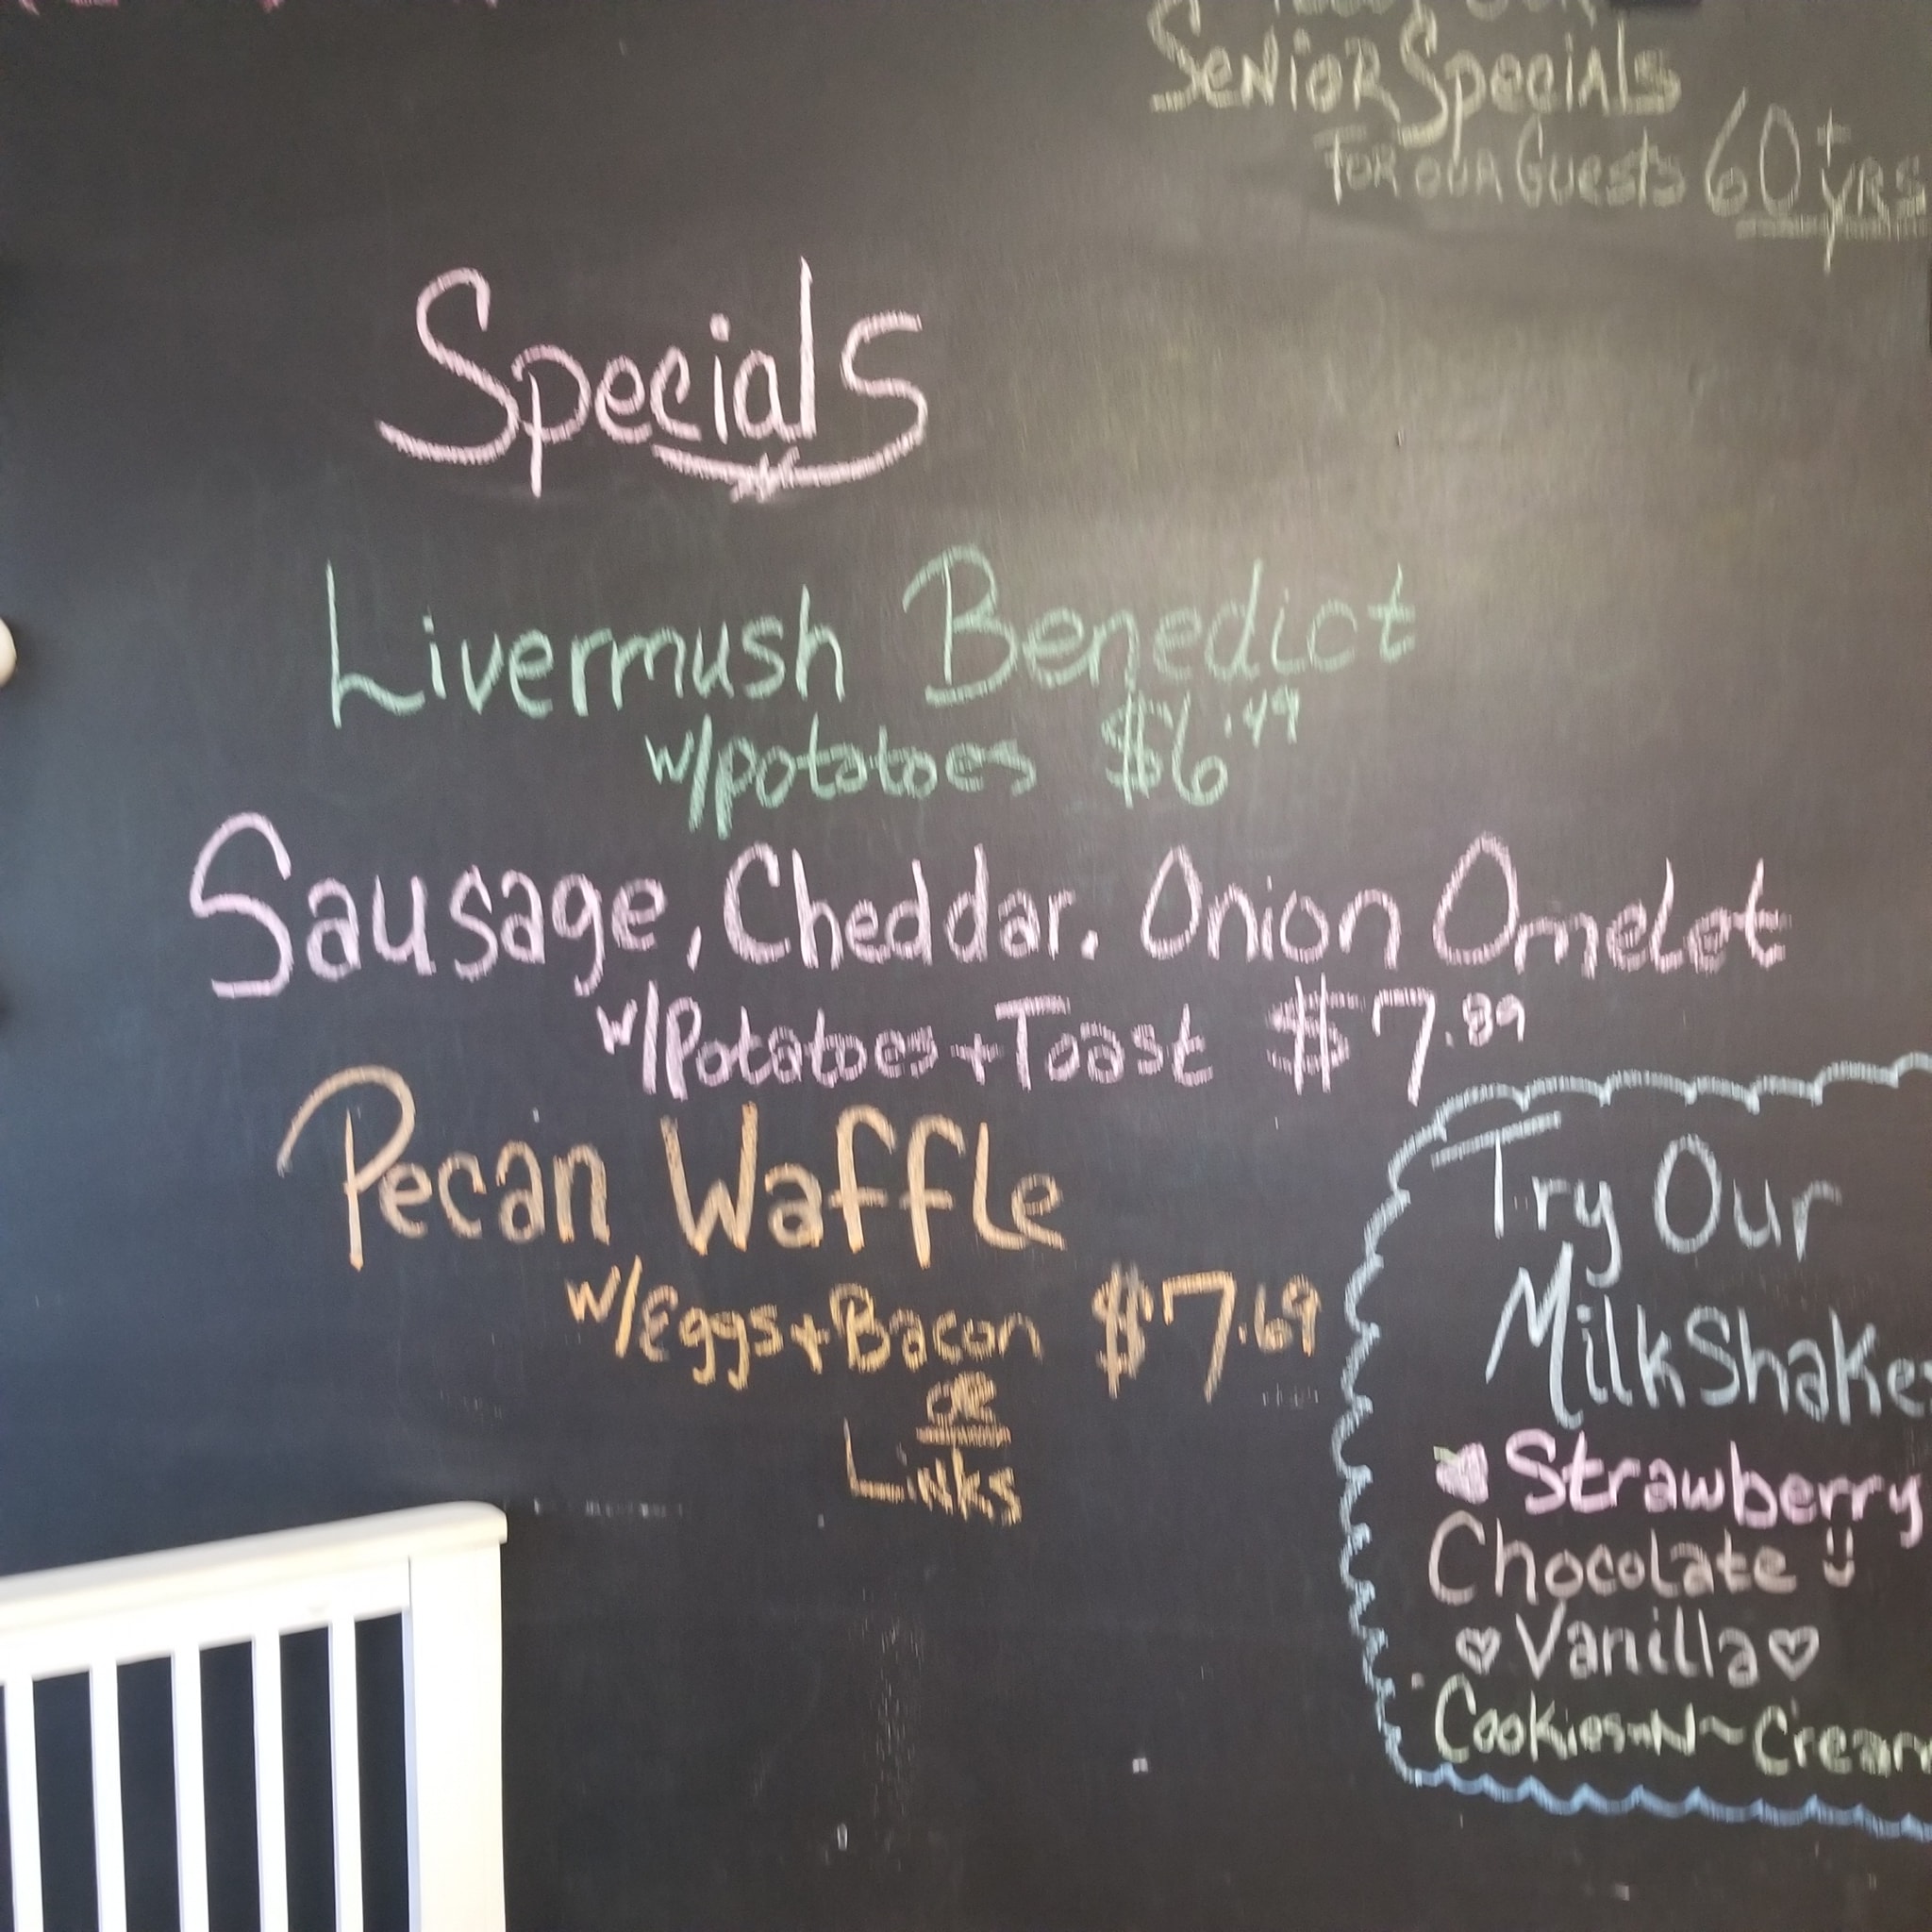 Senior Specials
For our Guests 60+ yrs
Specials
Livermush Benedict
w/potatoes $6.49
Sausage, Cheddar. Onion Omelet
w/Potatoes + Toast $7.89
Pecan Waffle
w/Eggs + Bacon $7.69
OR
Links
Try Our
MilkShakes
Strawberry
Chocolate
Vanilla
Cookies~N~Cream